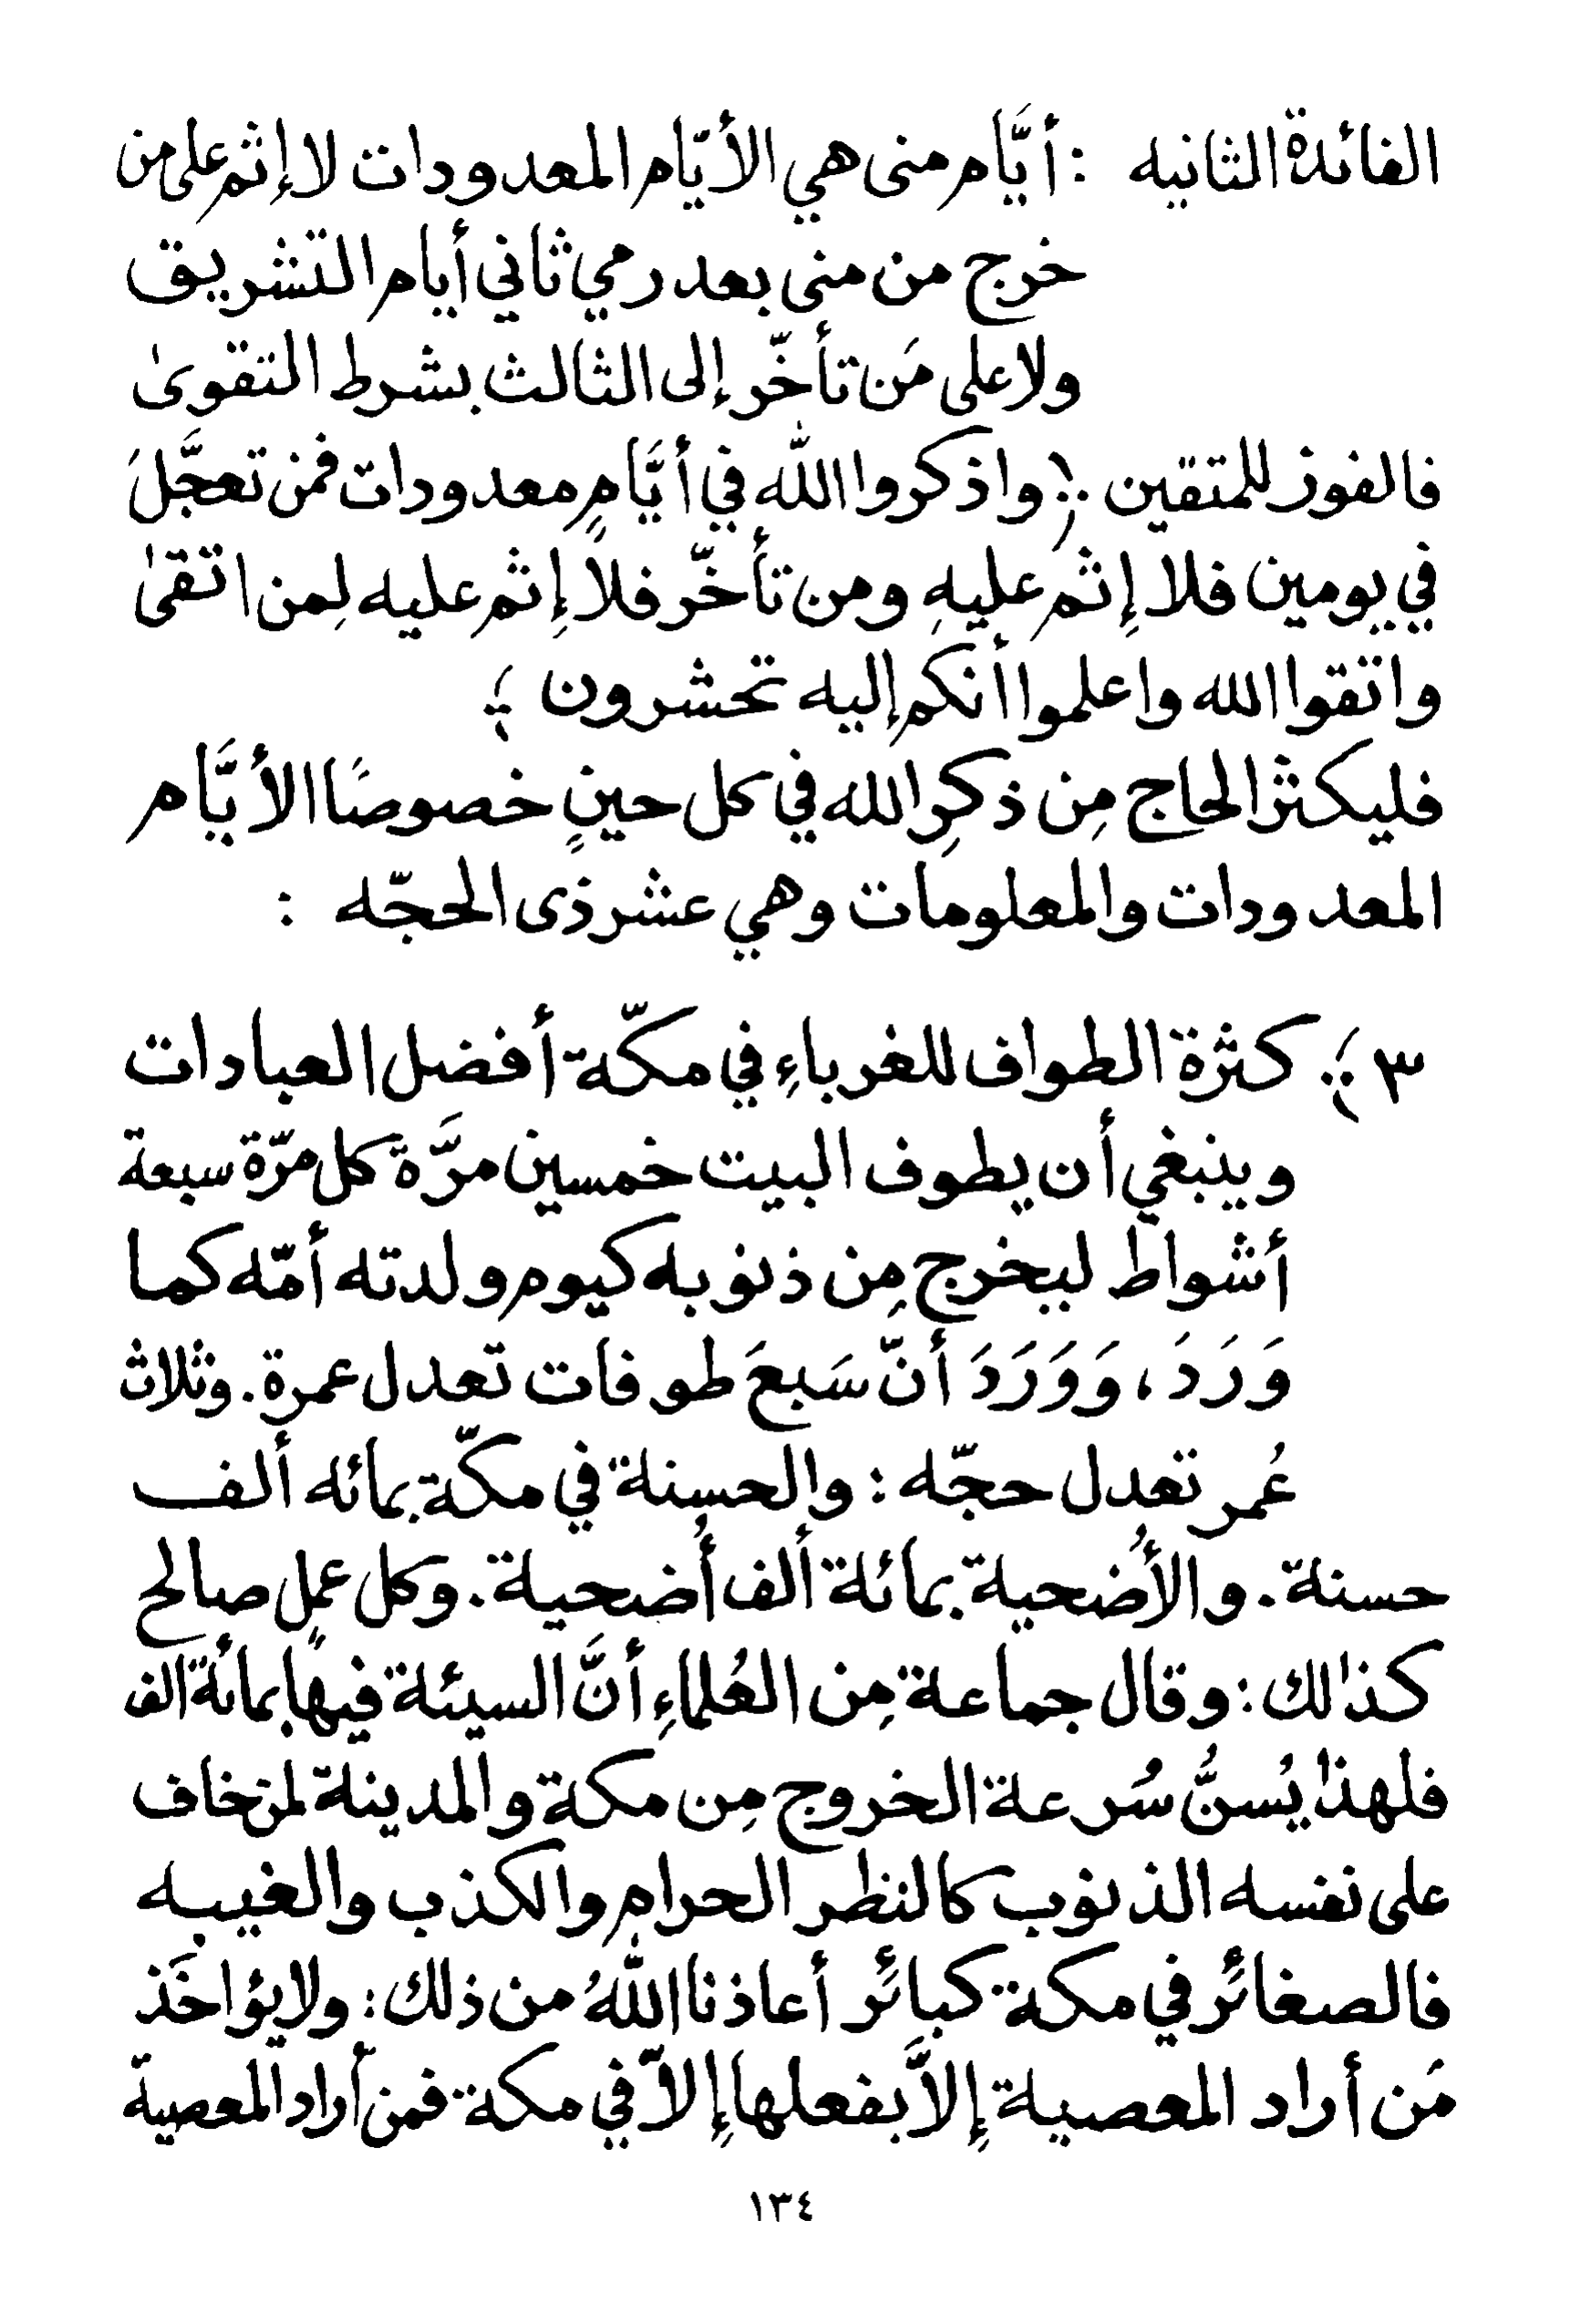 الفائدة الثانيه : أيَّام منى هي الأيّام المعدودات لا إثم على من
خرج من منى بعد رمي ثاني أيام التشريق
ولا على مَن تأخّر إلى الثالث بشرط التقوىٰ
فالفوز للمتقين ﴿ واذكروا الله في أيَّامٍ معدودات فمن تعجَّلَ
في يومين فلا إِثم عليهِ ومن تأخّر فلا إِثم عليه لِمن اتقىٰ
واتقوا الله واعلموا أنكم إليه تحشرون ﴾
فليكثر الحاج مِن ذكرِ الله في كل حينٍ خصوصًا الأيَّام
المعدودات والمعلومات وهي عشر ذى الحجّه :
٣ ﴾ كثرة الطواف للغرباءِ في مكّة أفضل العبادات
وينبغي أن يطوف البيت خمسين مرَّة كل مرّة سبعة
أشواط ليخرج مِن ذنوبه كيوم ولدته أمّه كما
وَرَدَ، وَوَرَدَ أنّ سَبعَ طوفات تعدل عمرة. وثلاث
عُمر تعدل حجّه : والحسنة في مكّة بمائه ألف
حسنة. والأُضحية بمائة ألف أُضحية. وكل عملٍ صالح
كذٰلك : وقال جماعة مِن العُلماءِ أنَّ السيئة فيها بمائة الف
فلهذٰا يُسنُّ سُرعة الخروج مِن مكة والمدينة لمن خاف
على نفسه الذنوب كالنظر الحرام والكذب والغيبه
فالصغائر في مكة كبائر أعاذنا اللهُ من ذلك : ولا يؤاخَذ
مَن أراد المعصية إِلاَّ بفعلها إِلاّ في مكة فمن أراد المعصية
١٣٤